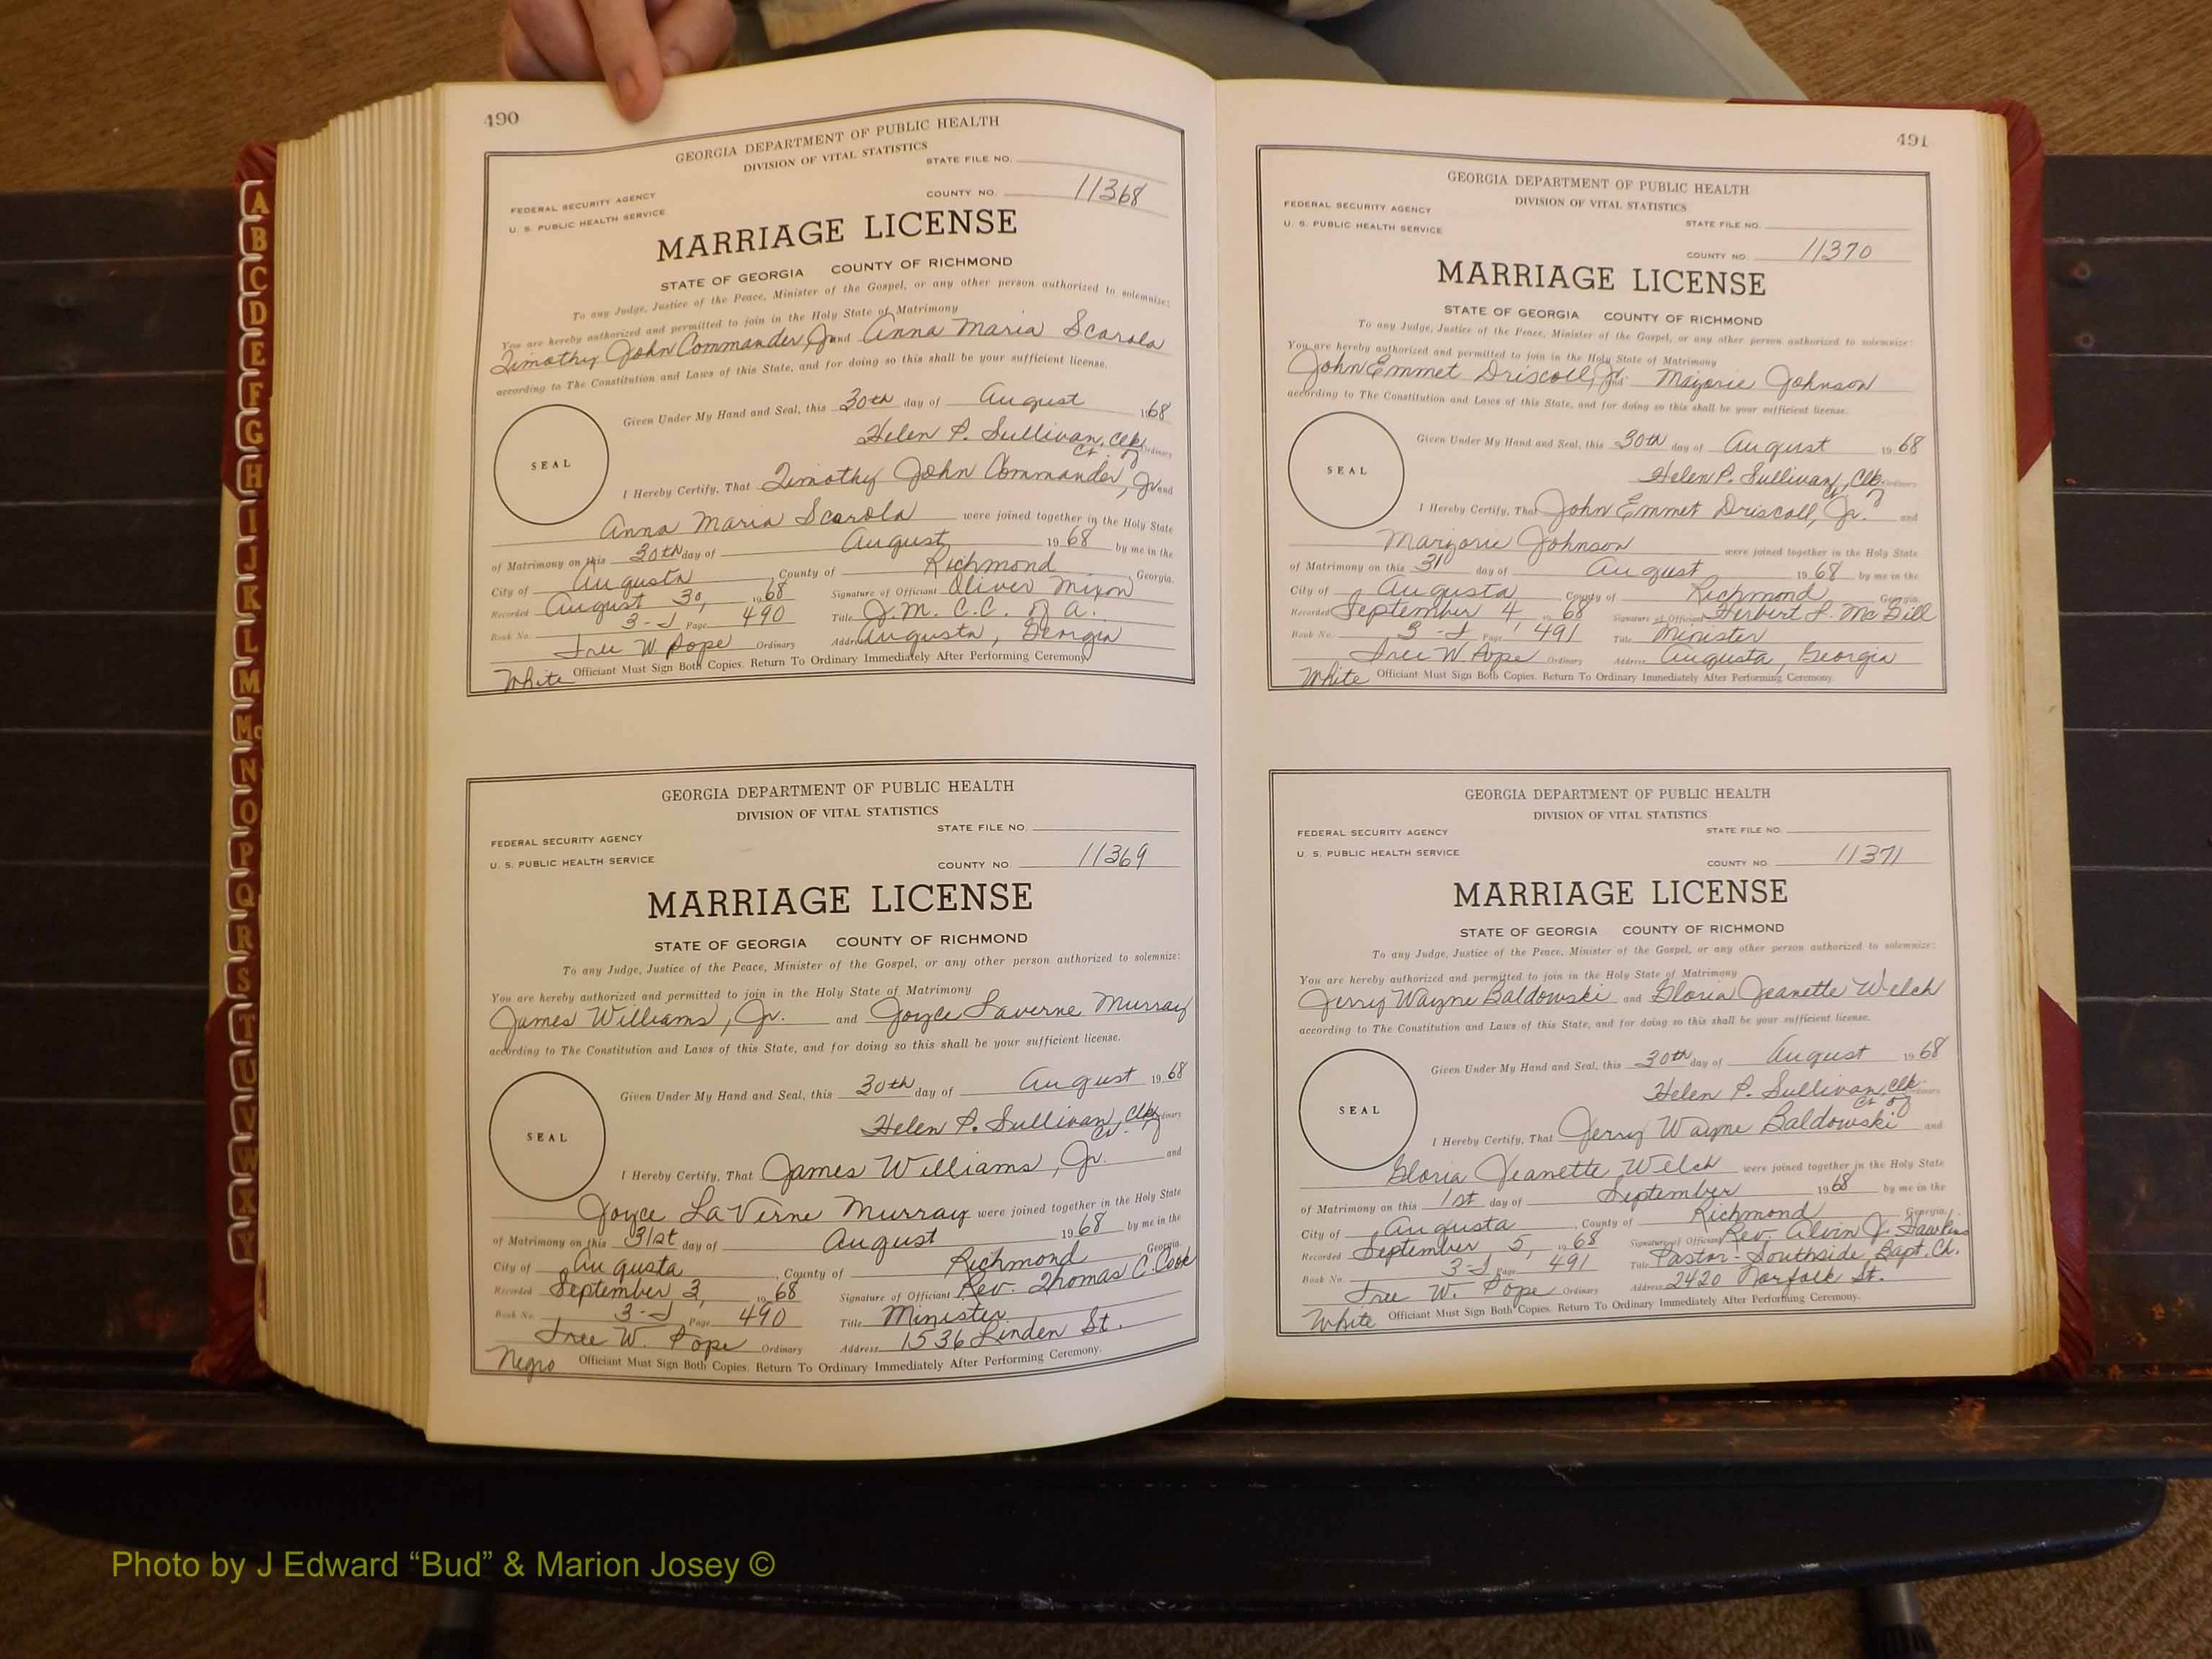 A
B
C
D
E
F
G
H
I
J
K
L
M
Mc
N
O
P
Q
R
S
T
U
V
W
X
Y
490
GEORGIA DEPARTMENT OF PUBLIC HEALTH
DIVISION OF VITAL STATISTICS
STATE FILE NO.
FEDERAL SECURITY AGENCY
U. S. PUBLIC HEALTH SERVICE
COUNTY NO. 11368
MARRIAGE LICENSE
STATE OF GEORGIA COUNTY OF RICHMOND
To any Judge, Justice of the Peace, Minister of the Gospel, or any other person authorized to solemnize:
You are hereby authorized and permitted to join in the Holy State of Matrimony
Timothy John Commander, Jr. and Anna Maria Scarola
according to The Constitution and Laws of this State, and for doing so this shall be your sufficient license.
Given Under My Hand and Seal, this 30th day of August 1968
Helen P. Sullivan, Clk. Ordinary
Ct. of
SEAL
I Hereby Certify, That Timothy John Commander, Jr. and
Anna Maria Scarola were joined together in the Holy State
of Matrimony on this 30th day of August 1968 by me in the
City of Augusta, County of Richmond Georgia.
Recorded August 30, 1968 Signature of Officiant Oliver Mixon
Book No. 3-J Page 490 Title J.M. C.C. of A.
Free W. Pope Ordinary Address Augusta, Georgia
White Officiant Must Sign Both Copies. Return To Ordinary Immediately After Performing Ceremony.
GEORGIA DEPARTMENT OF PUBLIC HEALTH
DIVISION OF VITAL STATISTICS
STATE FILE NO.
FEDERAL SECURITY AGENCY
U. S. PUBLIC HEALTH SERVICE
COUNTY NO. 11369
MARRIAGE LICENSE
STATE OF GEORGIA COUNTY OF RICHMOND
To any Judge, Justice of the Peace, Minister of the Gospel, or any other person authorized to solemnize:
You are hereby authorized and permitted to join in the Holy State of Matrimony
James Williams, Jr. and Joyce Laverne Murray
according to The Constitution and Laws of this State, and for doing so this shall be your sufficient license.
Given Under My Hand and Seal, this 30th day of August 1968
Helen P. Sullivan, Clk. Ordinary
Ct. of
SEAL
I Hereby Certify, That James Williams, Jr. and
Joyce LaVerne Murray were joined together in the Holy State
of Matrimony on this 31st day of August 1968 by me in the
City of Augusta, County of Richmond Georgia.
Recorded September 3, 1968 Signature of Officiant Rev. Thomas C. Cook
Book No. 3-J Page 490 Title Minister
Free W. Pope Ordinary Address 1536 Linden St.
Negro Officiant Must Sign Both Copies. Return To Ordinary Immediately After Performing Ceremony.
491
GEORGIA DEPARTMENT OF PUBLIC HEALTH
DIVISION OF VITAL STATISTICS
FEDERAL SECURITY AGENCY
U. S. PUBLIC HEALTH SERVICE
STATE FILE NO.
COUNTY NO 11370
MARRIAGE LICENSE
STATE OF GEORGIA COUNTY OF RICHMOND
To any Judge, Justice of the Peace, Minister of the Gospel, or any other person authorized to solemnize:
You are hereby authorized and permitted to join in the Holy State of Matrimony
John Emmet Driscoll, Jr. and Marjorie Johnson
according to The Constitution and Laws of this State, and for doing so this shall be your sufficient license.
Given Under My Hand and Seal, this 30th day of August 1968
Helen P. Sullivan, Clk. Ordinary
Ct. of
SEAL
I Hereby Certify, That John Emmet Driscoll, Jr. and
Marjorie Johnson were joined together in the Holy State
of Matrimony on this 31 day of August 1968 by me in the
City of Augusta County of Richmond Georgia.
Recorded September 4, 1968 Signature of Officiant Herbert L. McGill
Book No. 3-J Page 491 Title Minister
Free W. Pope Ordinary Address Augusta, Georgia
White Officiant Must Sign Both Copies. Return To Ordinary Immediately After Performing Ceremony.
GEORGIA DEPARTMENT OF PUBLIC HEALTH
DIVISION OF VITAL STATISTICS
FEDERAL SECURITY AGENCY
STATE FILE NO.
U. S. PUBLIC HEALTH SERVICE
COUNTY NO. 11371
MARRIAGE LICENSE
STATE OF GEORGIA COUNTY OF RICHMOND
To any Judge, Justice of the Peace, Minister of the Gospel, or any other person authorized to solemnize:
You are hereby authorized and permitted to join in the Holy State of Matrimony
Jerry Wayne Baldowski and Gloria Jeanette Welch
according to The Constitution and Laws of this State, and for doing so this shall be your sufficient license.
Given Under My Hand and Seal, this 30th day of August 1968
Helen P. Sullivan, Clk. Ordinary
Ct. of
SEAL
I Hereby Certify, That Jerry Wayne Baldowski and
Gloria Jeanette Welch were joined together in the Holy State
of Matrimony on this 1st day of September 1968 by me in the
City of Augusta, County of Richmond Georgia.
Recorded September 5, 1968 Signature of Officiant Rev. Alvin J. Hawkins
Book No. 3-J Page 491 Title Pastor - Southside Bapt. Ch.
Free W. Pope Ordinary Address 2420 Norfolk St.
White Officiant Must Sign Both Copies. Return To Ordinary Immediately After Performing Ceremony.
Photo by J Edward “Bud” & Marion Josey ©